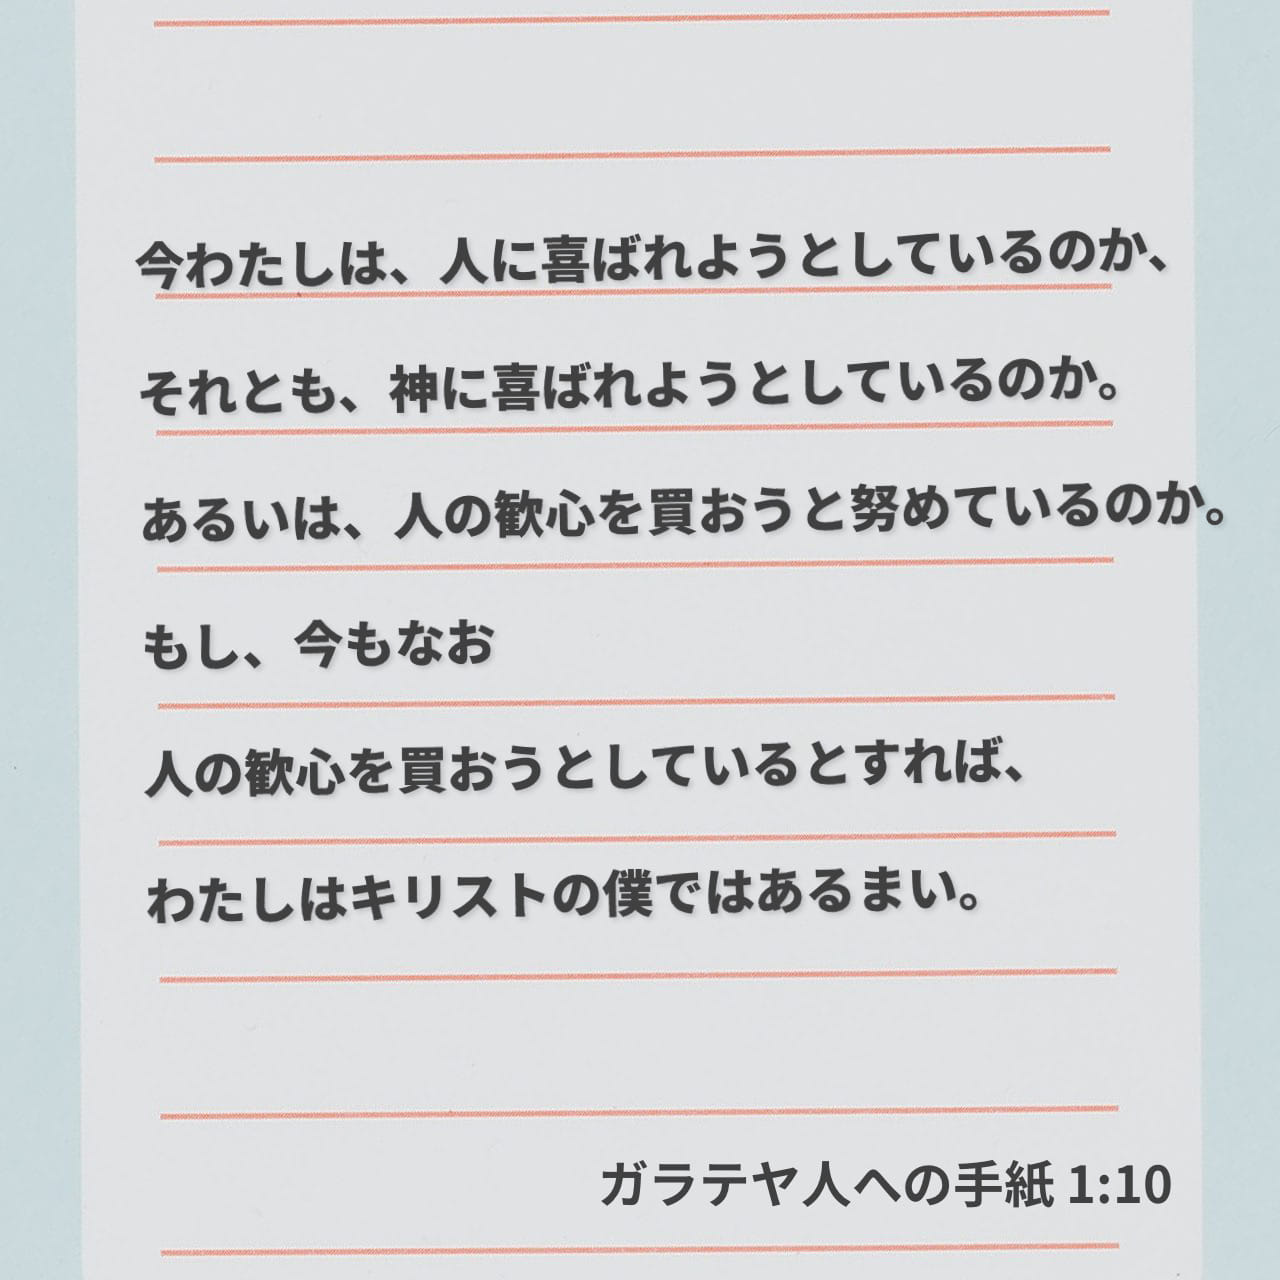 今わたしは、人に喜ばれようとしているのか、
それとも、神に喜ばれようとしているのか。
あるいは、人の歓心を買おうと努めているのか。
もし、今もなお
人の歓心を買おうとしているとすれば、
わたしはキリストの僕ではあるまい。
ガラテヤ人への手紙 1:10